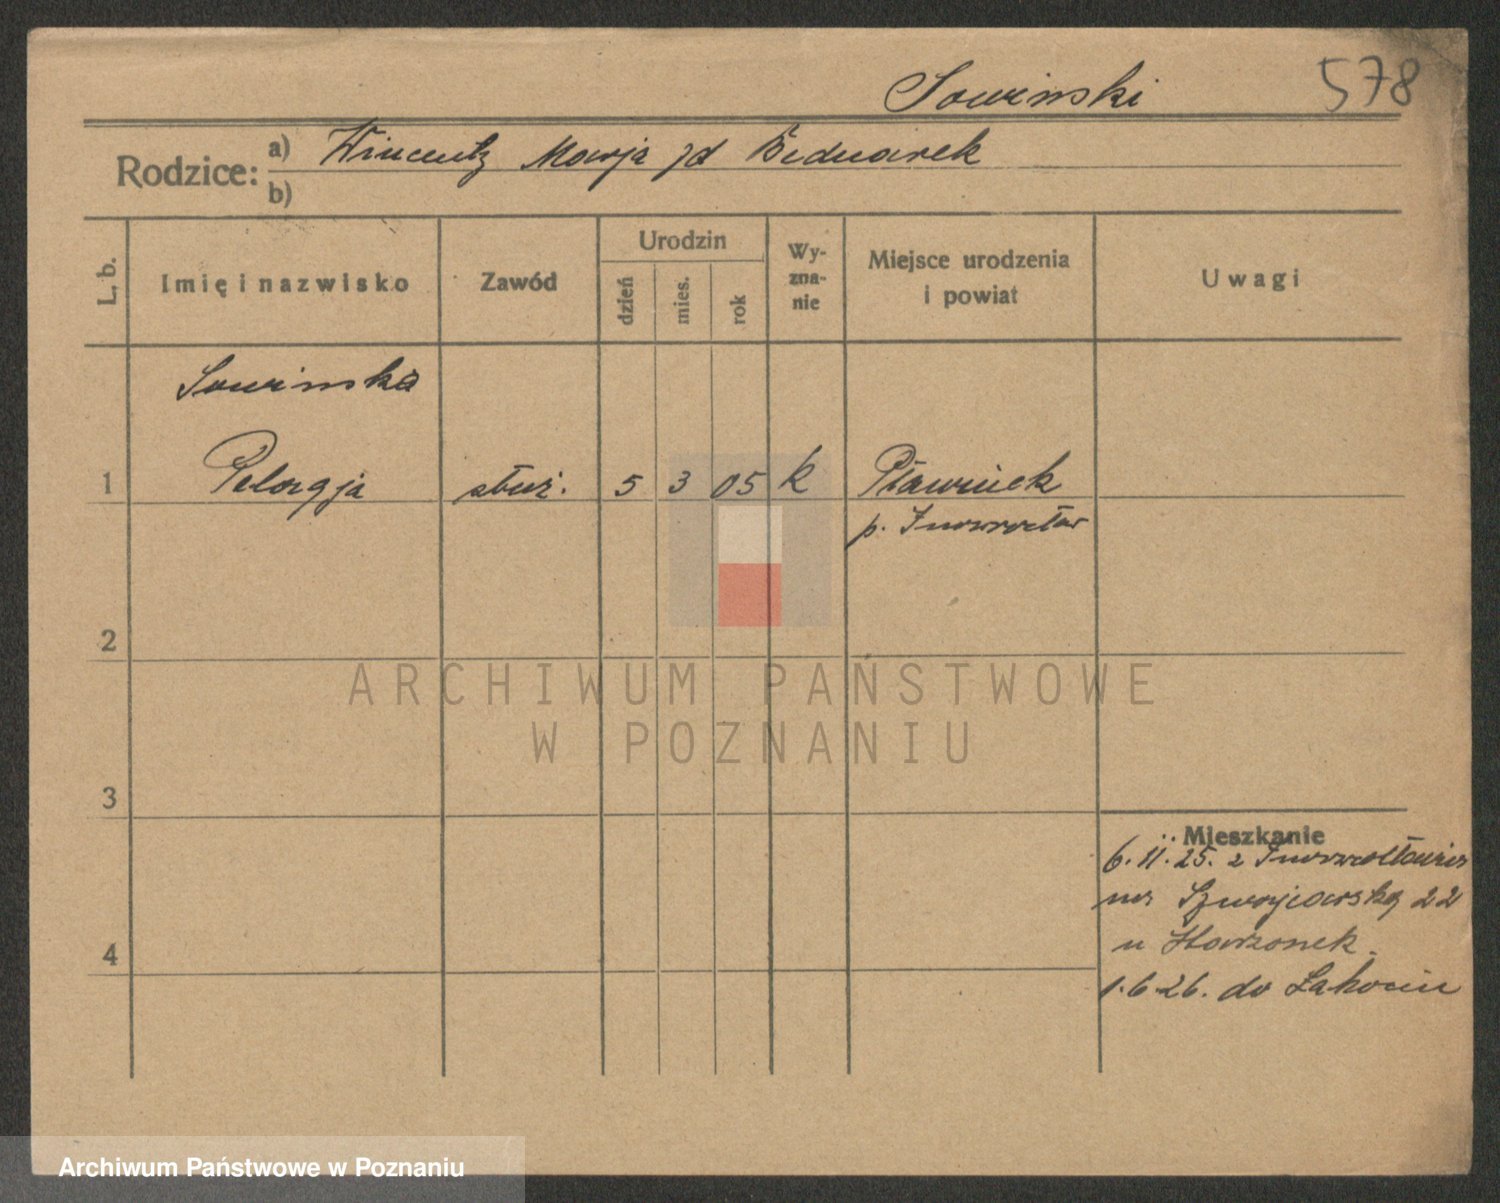 Sowinski 578
Rodzice: a) Wincenty Marja zd Bednarek
b)
L. b. Imię i nazwisko Zawód Urodzin dzień mies. rok Wyznanie Miejsce urodzenia i powiat Uwagi
Sowinska
1 Pelagja służ. 5 3 05 k Pławinek
p. Inowrocław
2
3
4
Mieszkanie
6.11.25. z Inowrocławia
na Szwajcarską 22
u
1.6.26. do
ARCHIWUM PAŃSTWOWE
W POZNANIU
Archiwum Państwowe w Poznaniu